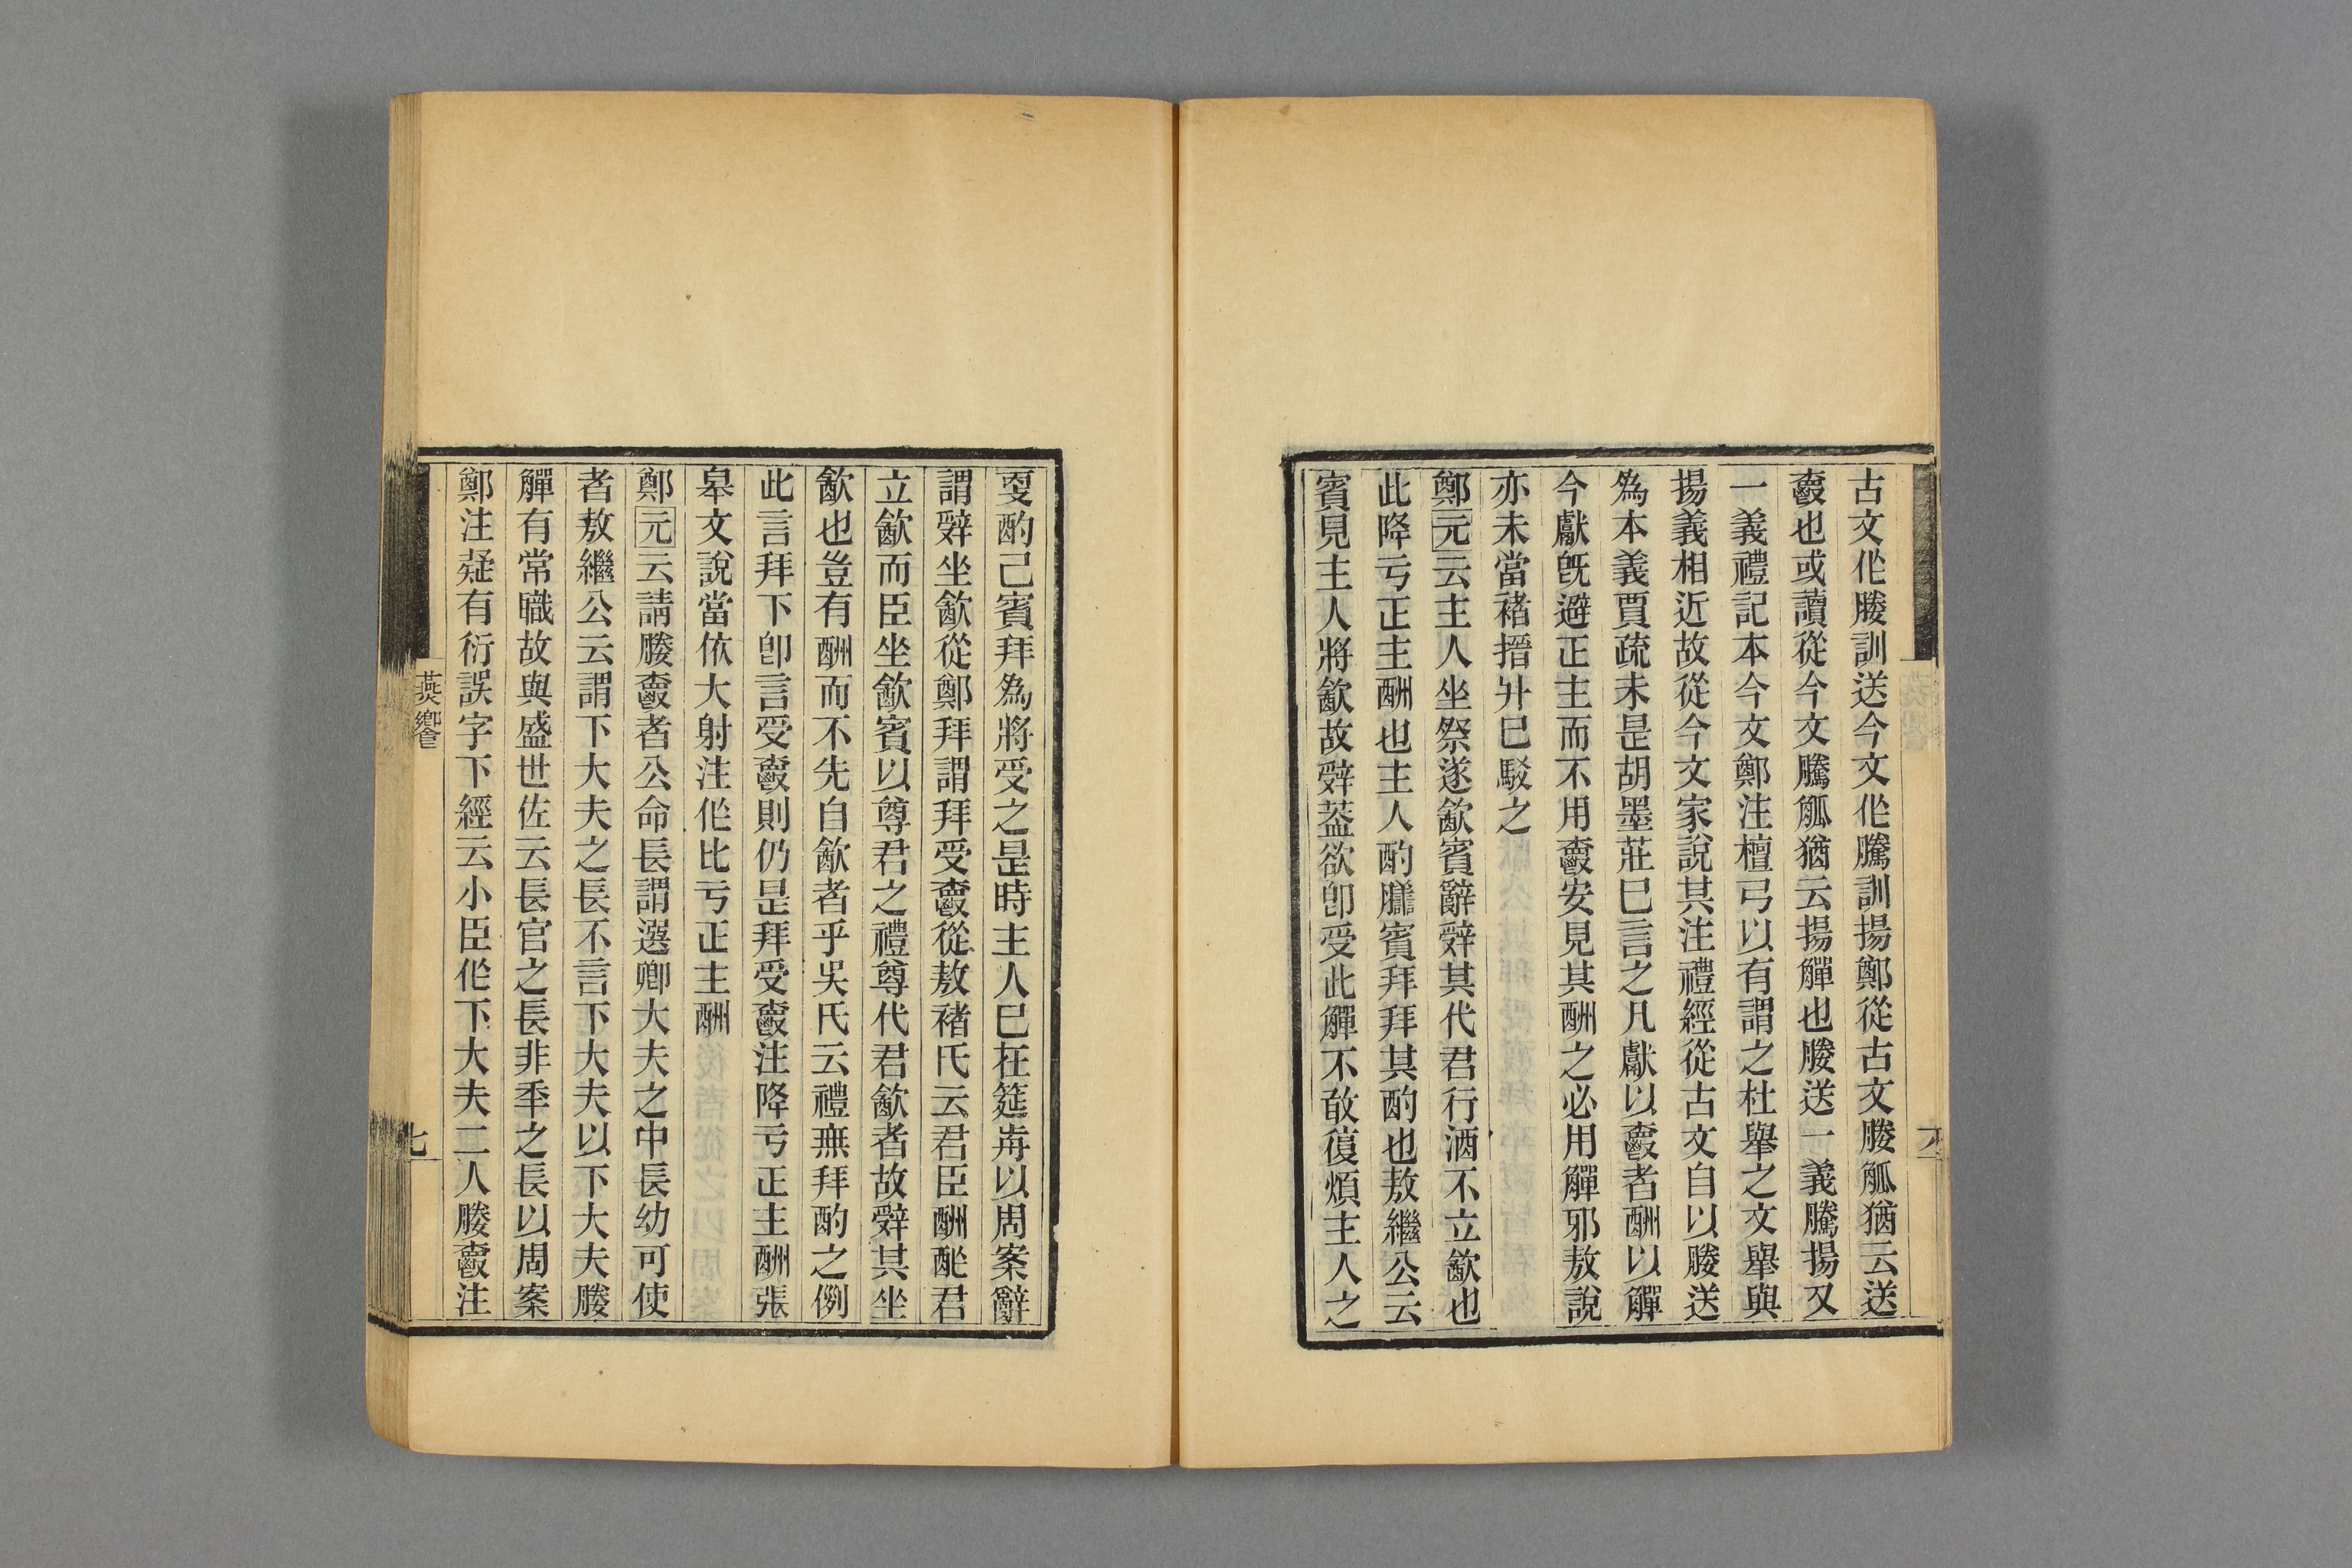 古文作媵訓送今文作騰訓揚鄭從古文媵觚猶云送
爵也或讀從今文騰觚猶云揚觶也媵送一義騰揚又
一義禮記本今文鄭注檀弓以有謂之杜舉之文舉與
揚義相近故從今文家說其注禮經從古文自以媵送
為本義賈疏未是胡墨莊已言之凡獻以爵者酬以觶
今獻既避正主而不用爵安見其酬之必用觶邪敖說
亦未當褚搢升已駁之
鄭元云主人坐祭遂飲賓辭辤其代君行酒不立飲也
此降亏正主酬也主人酌膳賓拜拜其酌也敖繼公云
賓見主人將飲故辤葢欲卽受此觶不敢復煩主人之
更酌己賓拜為將受之是時主人已在筵歬以周案辭
謂辤坐飲從鄭拜謂拜受爵從敖褚氏云君臣酬酢君
立飲而臣坐飲賓以尊君之禮尊代君飲者故辤其坐
飲也豈有酬而不先自飲者乎吳氏云禮無拜酌之例
此言拜下卽言受爵則仍是拜受爵注降亏正主酬張
皋文說當依大射注作比亏正主酬
鄭元云請媵爵者公命長謂選卿大夫之中長幼可使
者敖繼公云謂下大夫之長不言下大夫以下大夫媵
觶有常職故與盛世佐云長官之長非秊之長以周案
鄭注疑有衍誤字下經云小臣作下大夫二人媵爵注
燕饗
七